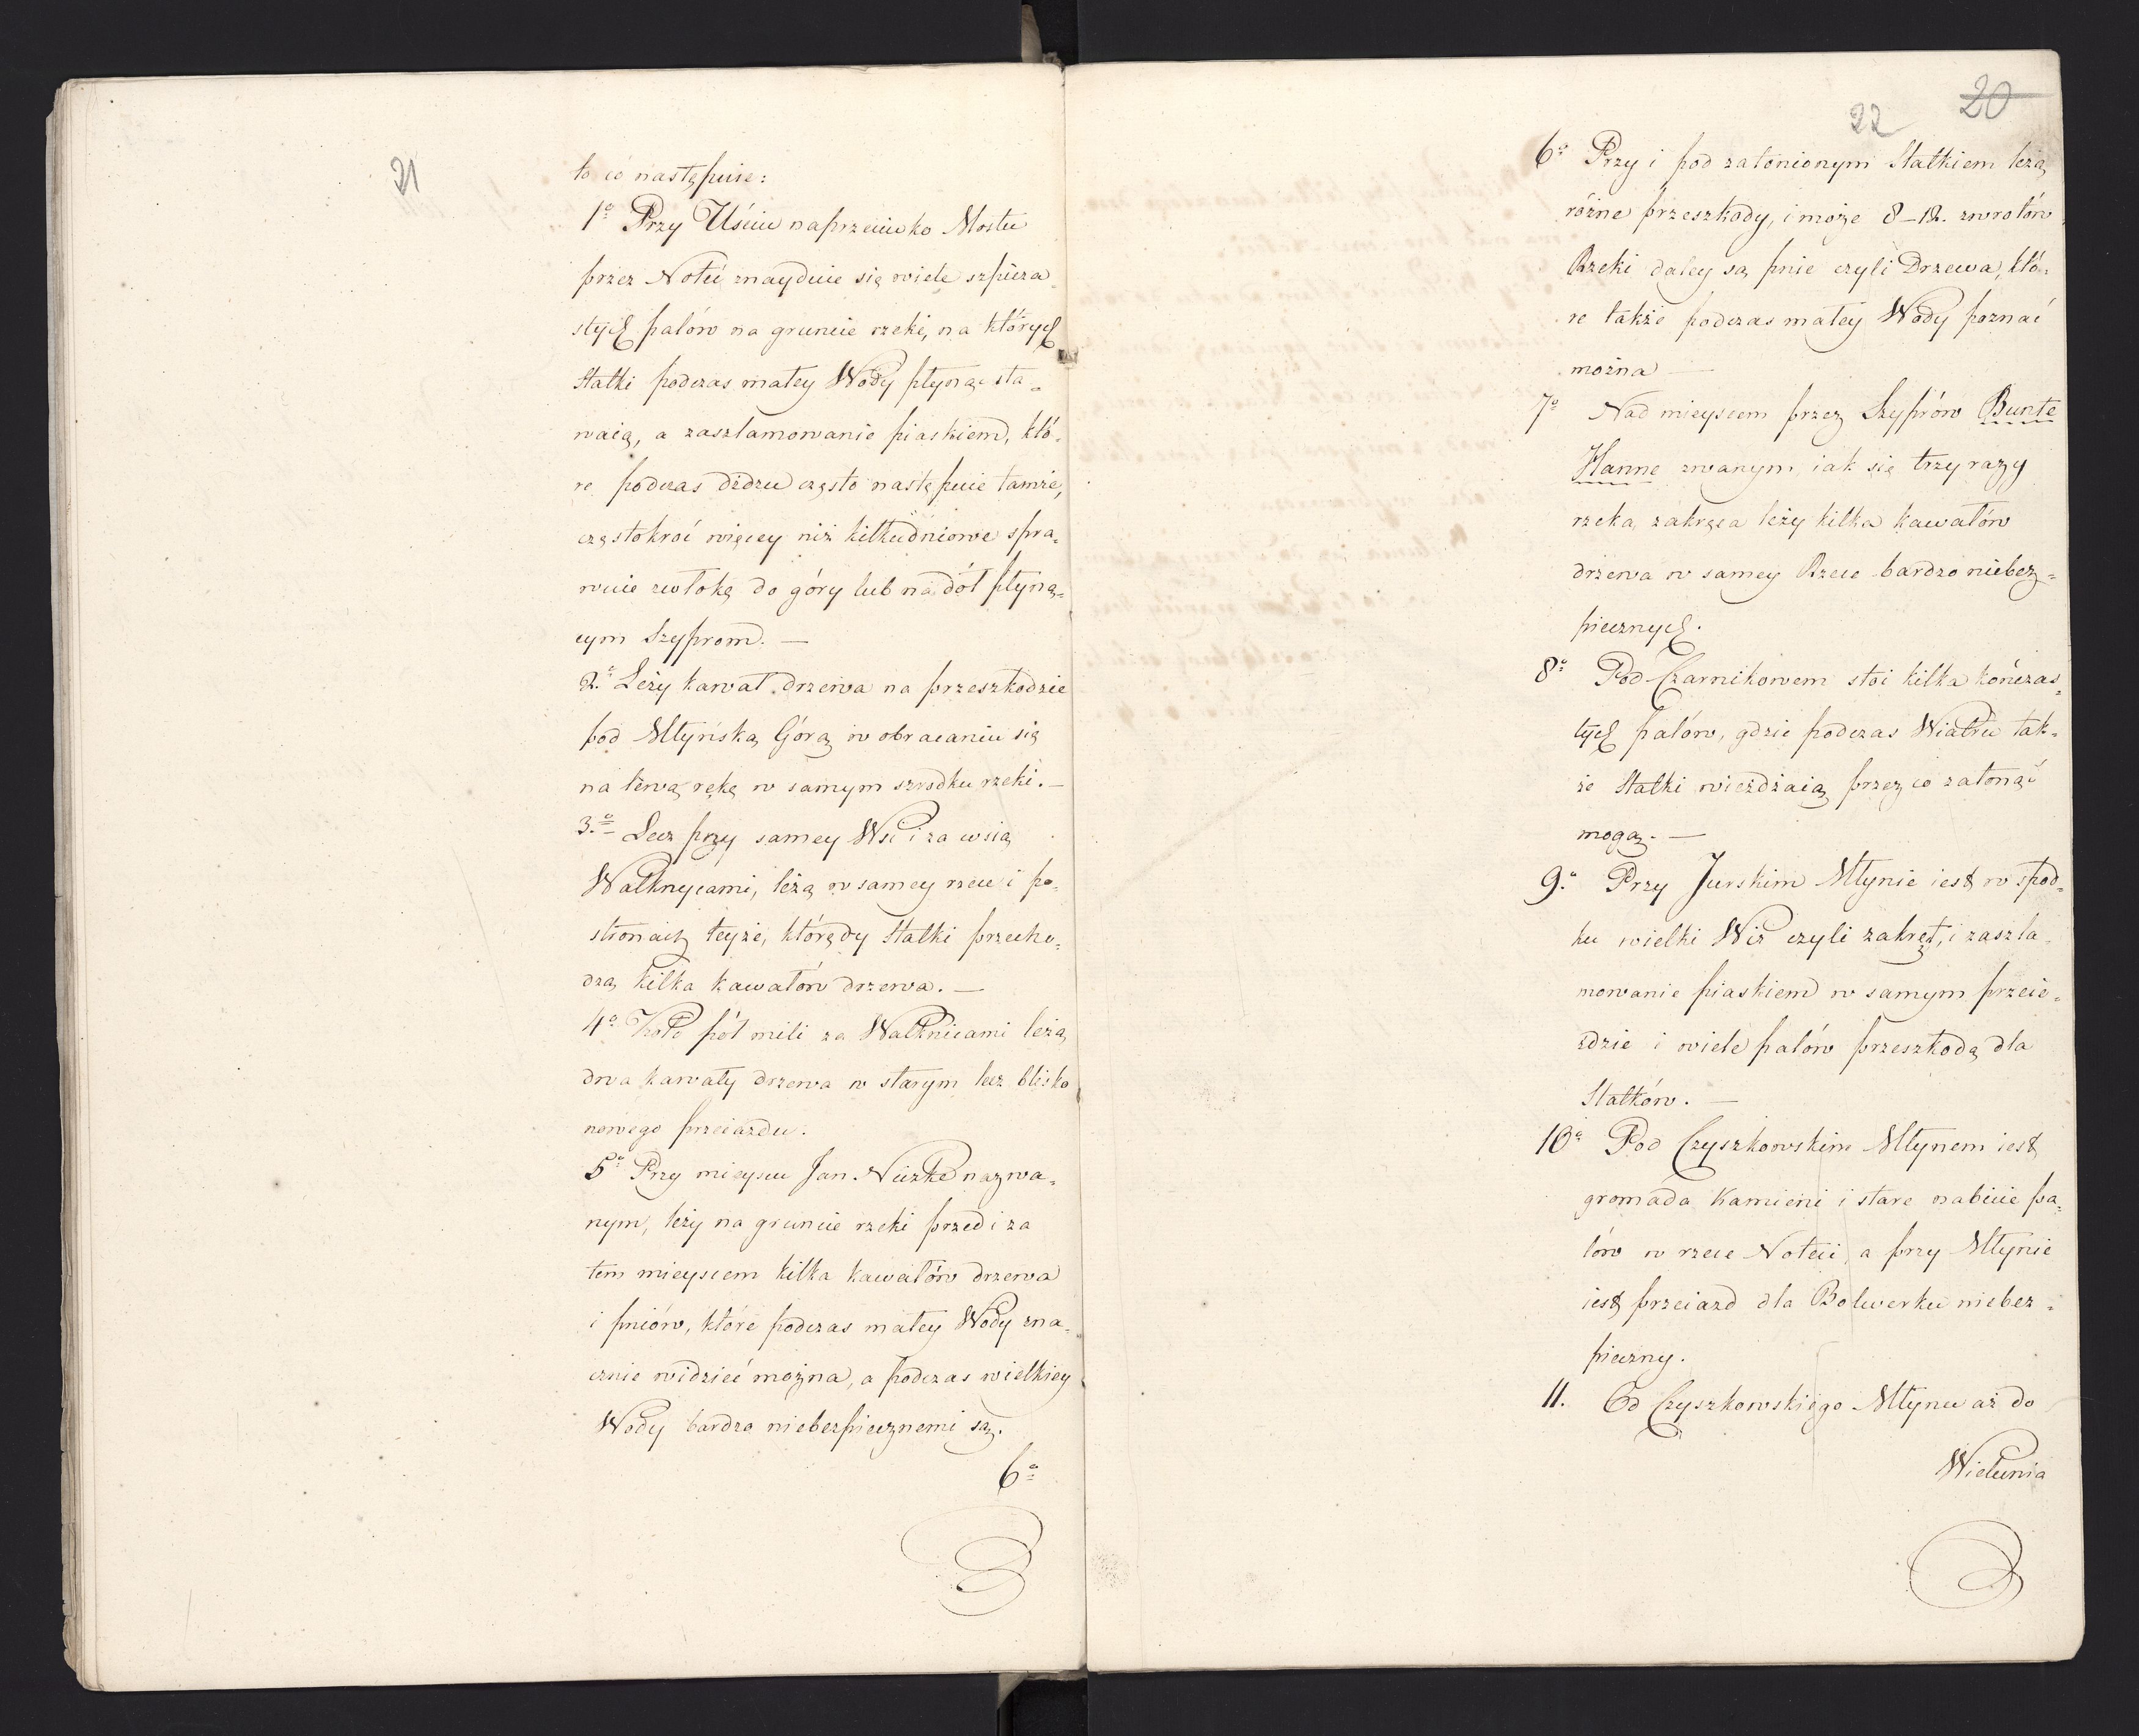 21
to co następuie:
1o Przy Uściu naprzeciwko Mostu
przez Noteć znayduie się wiele szpicza
stych palów na gruncie rzeki, na których
Statki podczas małey Wody płynąc sta-
waią, a zaszlamowanie piaskiem, któ-
re podczas dżdżu często następuie tamże,
częstokroć więcey niż kilkudniowe spra-
wuie zwłokę do góry lub na dół płyną-
cym Szyprom. —
2.o Leży kawał drzewa na przeszkodzie
pod Młyńską Górą w obracaniu się
na lewą rękę w samym szrodku rzeki. —
3.o Lecz przy samey Wsi i za wsią
Walknycami, leżą w samey rzece i po-
stronach teyże, którędy Statki przecho-
dzą kilka kawałów drzewa. —
4o Koło pół mili za Walknicami leżą
dwa kawały drzewa w starym lecz blisko
nowego przeiazdu.
5o Przy mieyscu Jan Nuzke nazwa-
nym, leży na gruncie rzeki przed i za
tem mieyscem kilka kawałów drzewa
i pniów, które podczas małey Wody zna-
cznie widzieć można, a podczas wielkiey
Wody bardzo niebezpiecznemi są.
6o
22 20
6o Przy i pod zatonionym Statkiem leżą
różne przeszkody, i może 8–12. zwrotów
Rzeki daley są pnie czyli Drzewa, któ-
re także podczas małey Wody poznać
można —
7o Nad mieyscem przez Szyprów Bunte
Hanne zwanym iak się trzy razy
rzeka zakręca leży kilka kawałów
drzewa w samey Rzece bardzo niebez-
piecznych.
8o Pod Czarnikowem stoi kilka kończas-
tych palów, gdzie podczas Wiatru tak-
że Statki wieżdżaią przez co zatonąć
mogą. —
9.o Przy Jurskim Młynie iest w spod-
ku wielki Wir czyli zakręt, i zaszla-
mowanie piaskiem w samym przeie-
zdzie i wiele palów przeszkodą dla
Statków. —
10o Pod Czyszkowskim Młynem iest
gromada Kamieni i stare nabicie pa-
lów w rzece Noteci, a przy Młynie
iest przeiazd dla Bolwerku niebez-
pieczny.
11. Od Czyszkowskiego Młynu aż do
Wielunia